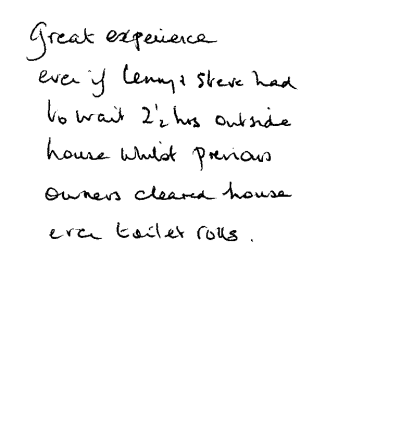 Great experience
even if Lenny & Steve had
to wait 2½ hrs outside
house whilst previous
owners cleared house
even toilet rolls.